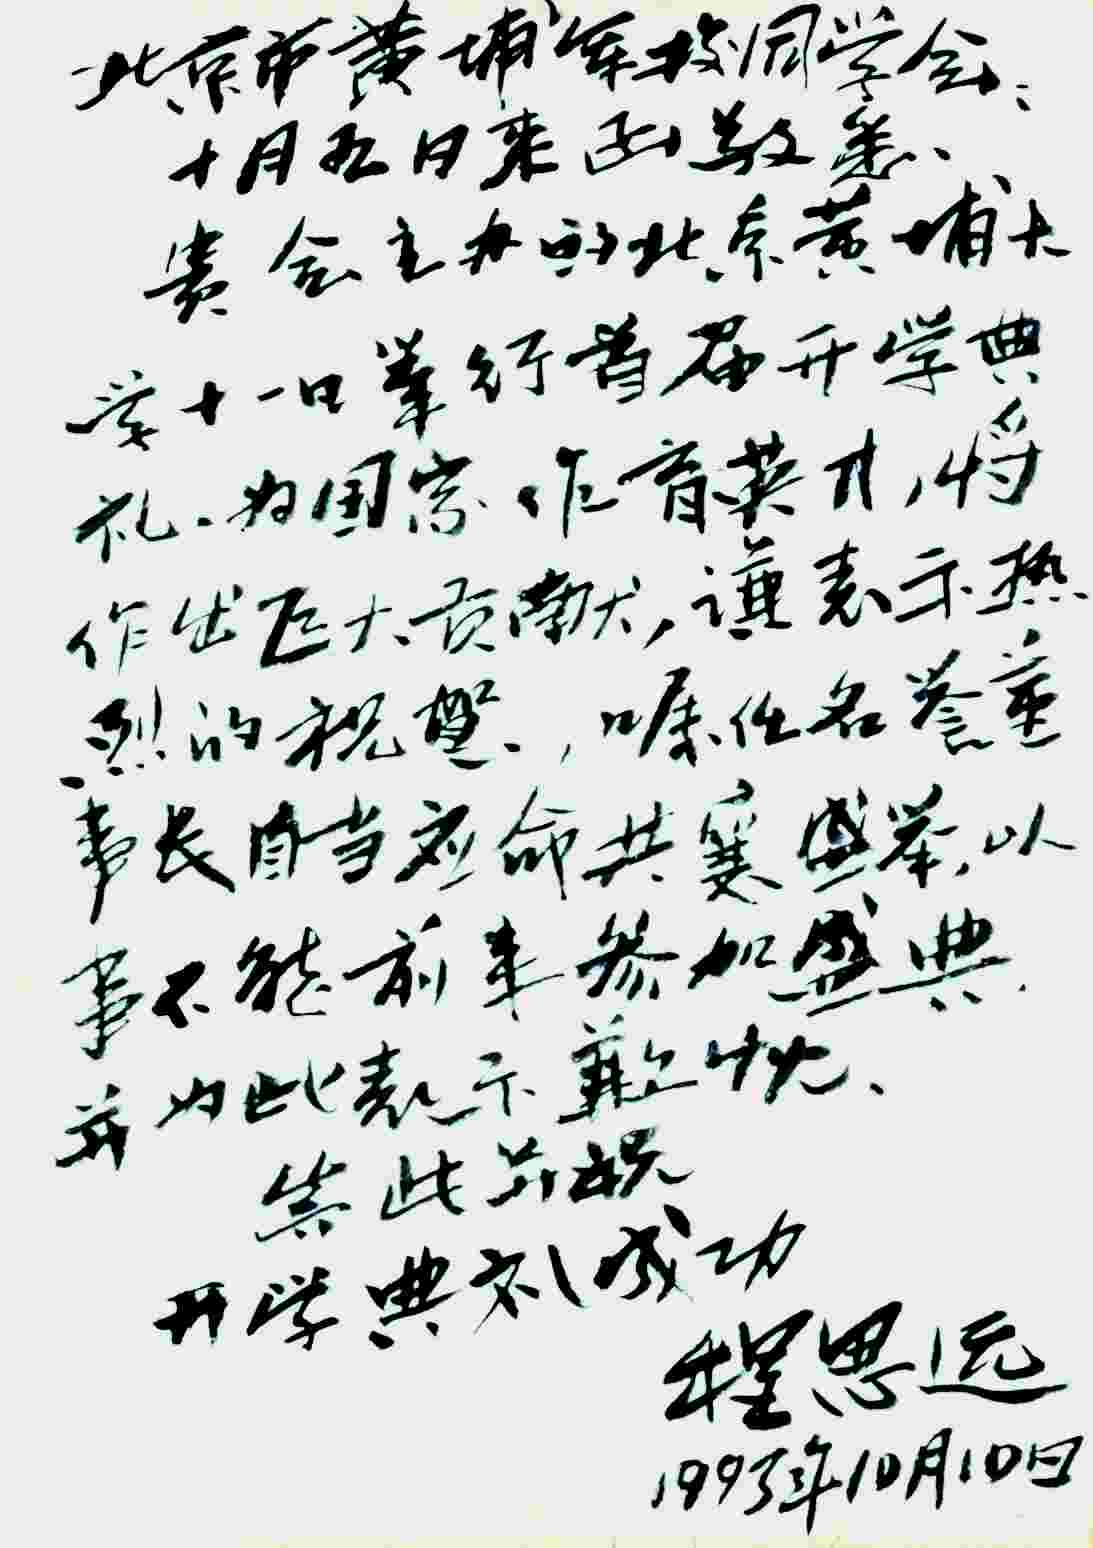 北京市黄埔军校同学会:
十月五日来函敬悉、
贵会主办的北京黄埔大
学十一日举行首届开学典
礼.为国家作育英才,将
作出巨大贡献,谨表示热
烈的祝贺.,嘱任名誉董
事长自当应命共襄盛举,以
事不能前来参加盛典.
并为此表示歉忱、
崇此并祝
开学典礼成功
程思远
1993年10月10日